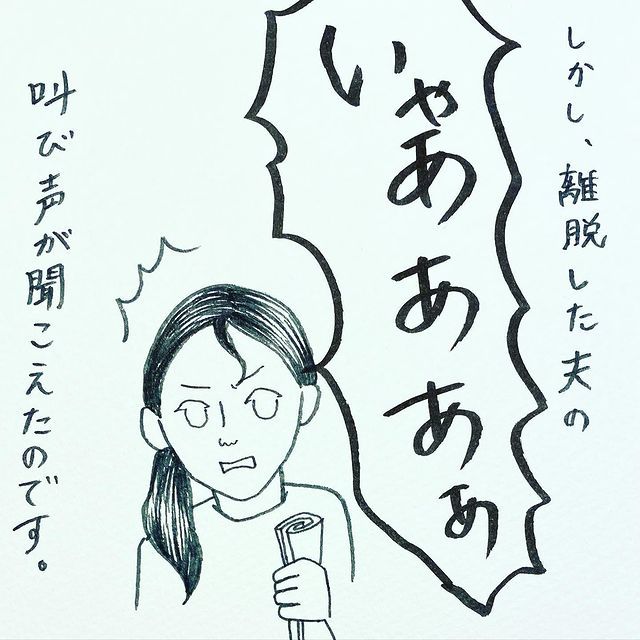 しかし、離脱した夫の
いゃあああぁ
叫び声が聞こえたのです。